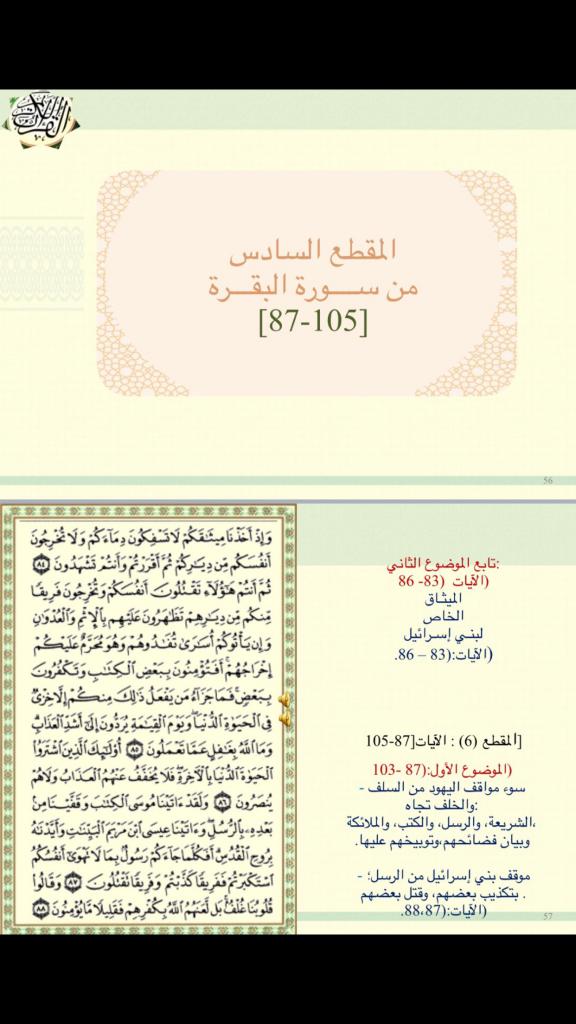 المقطع السادس
من ســـورة البقـــرة
[87-105]
56
وَإِذْ أَخَذْنَا مِيثَٰقَكُمْ لَا تَسْفِكُونَ دِمَآءَكُمْ وَلَا تُخْرِجُونَ
أَنفُسَكُم مِّن دِيَٰرِكُمْ ثُمَّ أَقْرَرْتُمْ وَأَنتُمْ تَشْهَدُونَ ٨٤
ثُمَّ أَنتُمْ هَٰٓؤُلَآءِ تَقْتُلُونَ أَنفُسَكُمْ وَتُخْرِجُونَ فَرِيقًا
مِّنكُم مِّن دِيَٰرِهِمْ تَظَٰهَرُونَ عَلَيْهِم بِٱلْإِثْمِ وَٱلْعُدْوَٰنِ
وَإِن يَأْتُوكُمْ أُسَٰرَىٰ تُفَٰدُوهُمْ وَهُوَ مُحَرَّمٌ عَلَيْكُمْ
إِخْرَاجُهُمْ أَفَتُؤْمِنُونَ بِبَعْضِ ٱلْكِتَٰبِ وَتَكْفُرُونَ
بِبَعْضٍ فَمَا جَزَآءُ مَن يَفْعَلُ ذَٰلِكَ مِنكُمْ إِلَّا خِزْىٌ
فِى ٱلْحَيَوٰةِ ٱلدُّنْيَا وَيَوْمَ ٱلْقِيَٰمَةِ يُرَدُّونَ إِلَىٰٓ أَشَدِّ ٱلْعَذَابِ
وَمَا ٱللَّهُ بِغَٰفِلٍ عَمَّا تَعْمَلُونَ ٨٥ أُو۟لَٰٓئِكَ ٱلَّذِينَ ٱشْتَرَوُا۟
ٱلْحَيَوٰةَ ٱلدُّنْيَا بِٱلْءَاخِرَةِ فَلَا يُخَفَّفُ عَنْهُمُ ٱلْعَذَابُ وَلَا هُمْ
يُنصَرُونَ ٨٦ وَلَقَدْ ءَاتَيْنَا مُوسَى ٱلْكِتَٰبَ وَقَفَّيْنَا مِنۢ
بَعْدِهِۦ بِٱلرُّسُلِ وَءَاتَيْنَا عِيسَى ٱبْنَ مَرْيَمَ ٱلْبَيِّنَٰتِ وَأَيَّدْنَٰهُ
بِرُوحِ ٱلْقُدُسِ أَفَكُلَّمَا جَآءَكُمْ رَسُولٌۢ بِمَا لَا تَهْوَىٰٓ أَنفُسُكُمُ
ٱسْتَكْبَرْتُمْ فَفَرِيقًا كَذَّبْتُمْ وَفَرِيقًا تَقْتُلُونَ ٨٧ وَقَالُوا۟
قُلُوبُنَا غُلْفٌۢ بَل لَّعَنَهُمُ ٱللَّهُ بِكُفْرِهِمْ فَقَلِيلًا مَّا يُؤْمِنُونَ ٨٨
:تابع الموضوع الثاني
(الآيات (83- 86
الميثاق
الخاص
لبني إسرائيل
(الآيات:(83 – 86.
[المقطع (6) : الآيات[87-105
(الموضوع الأول:(87 -103
سوء مواقف اليهود من السلف -
:والخلف تجاه
،الشريعة، والرسل، والكتب، والملائكة
وبيان فضائحهم،وتوبيخهم عليها.
موقف بني إسرائيل من الرسل؛ -
. بتكذيب بعضهم، وقتل بعضهم
(الآيات:(88،87.
57